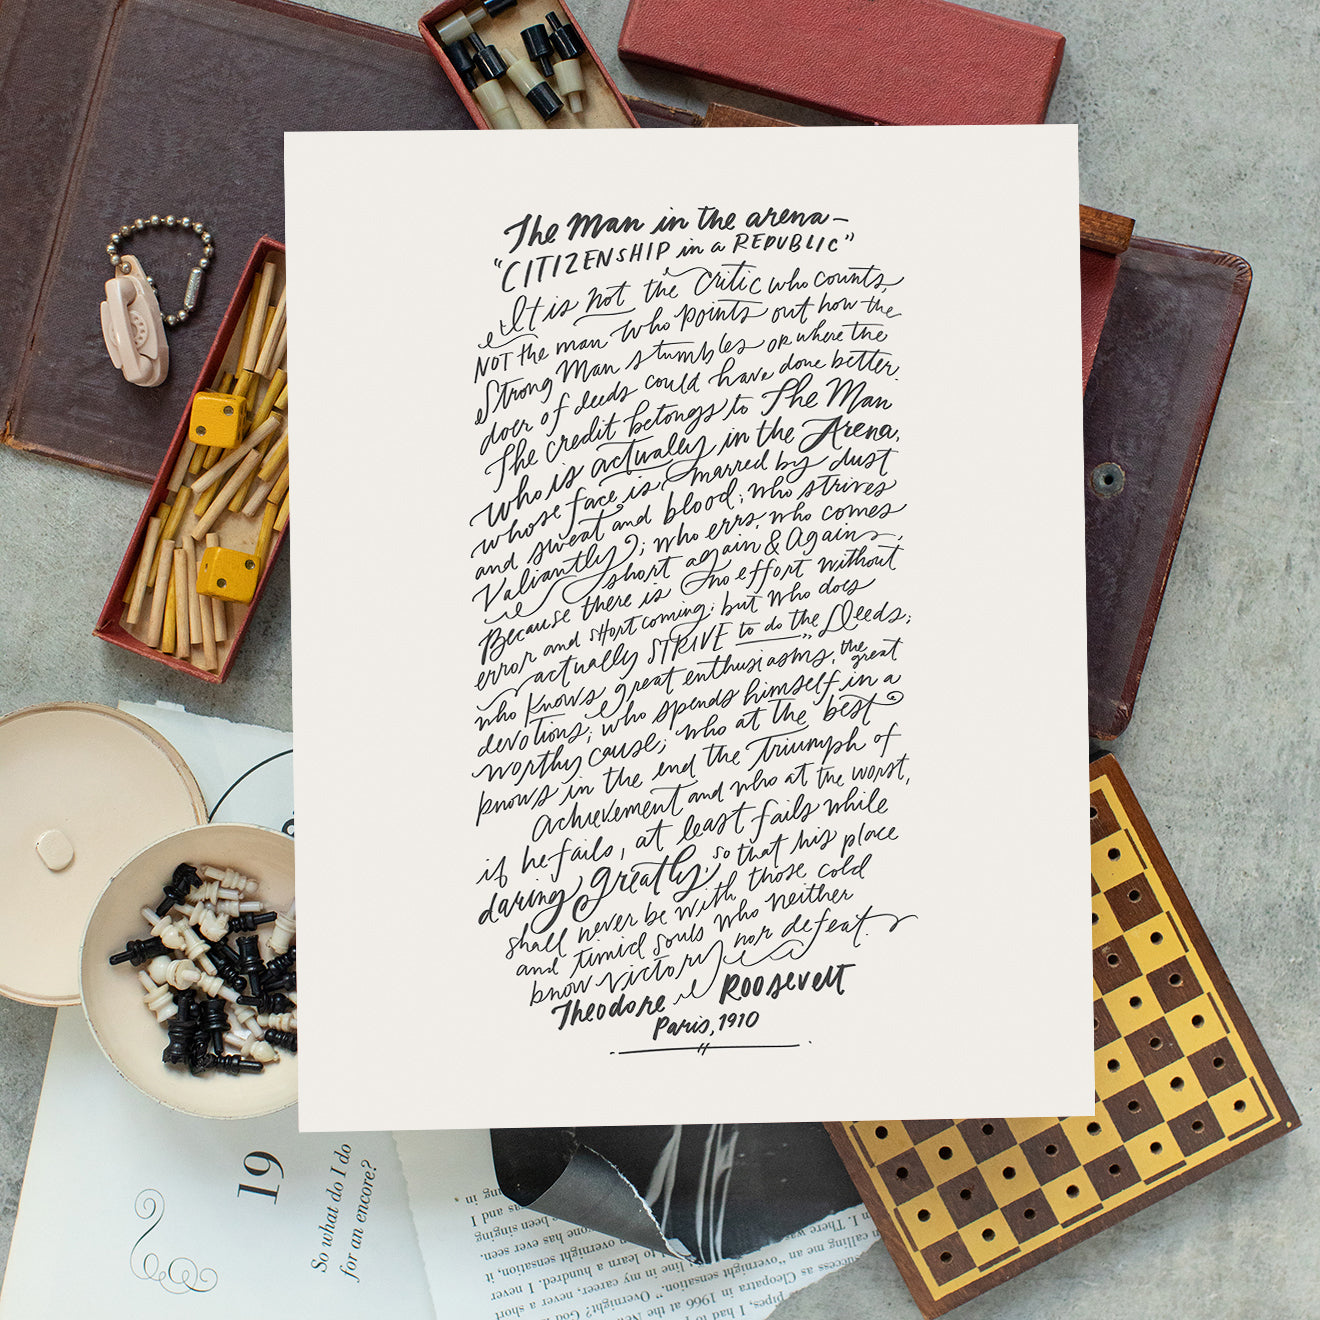 The Man in the arena—
"CITIZENSHIP in a REPUBLIC"
It is not the critic who counts,
NOT the man who points out how the
Strong Man stumbles or where the
doer of deeds could have done better.
The credit belongs to The Man
who is actually in the Arena,
whose face is marred by dust
and sweat and blood; who strives
Valiantly; who errs, who comes
short again & Again,
Because there is no effort without
error and shortcoming; but who does
actually STRIVE to do the Deeds;
who knows great enthusiasms, the great
devotions; who spends himself in a
worthy cause; who at the best
knows in the end the triumph of
achievement and who at the worst,
if he fails, at least fails while
daring greatly, so that his place
shall never be with those cold
and timid souls who neither
know victory nor defeat.
Theodore Roosevelt
Paris, 1910
19
So what do I do
for an encore?